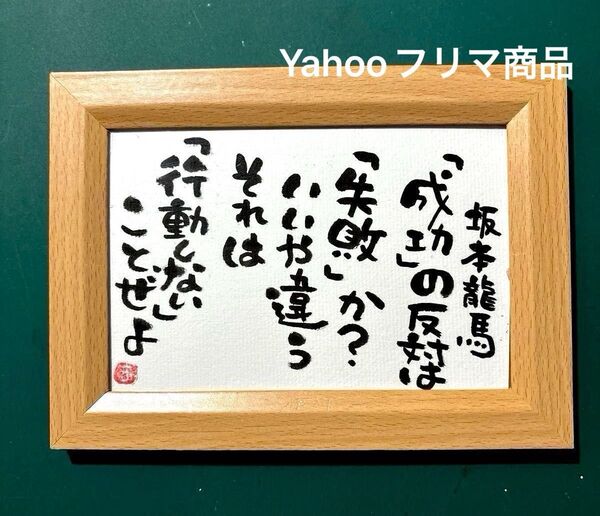 Yahoo フリマ商品
坂本龍馬
「成功」の反対は
「失敗」か？
いいや違う
それは
「行動しない」
ことぜよ